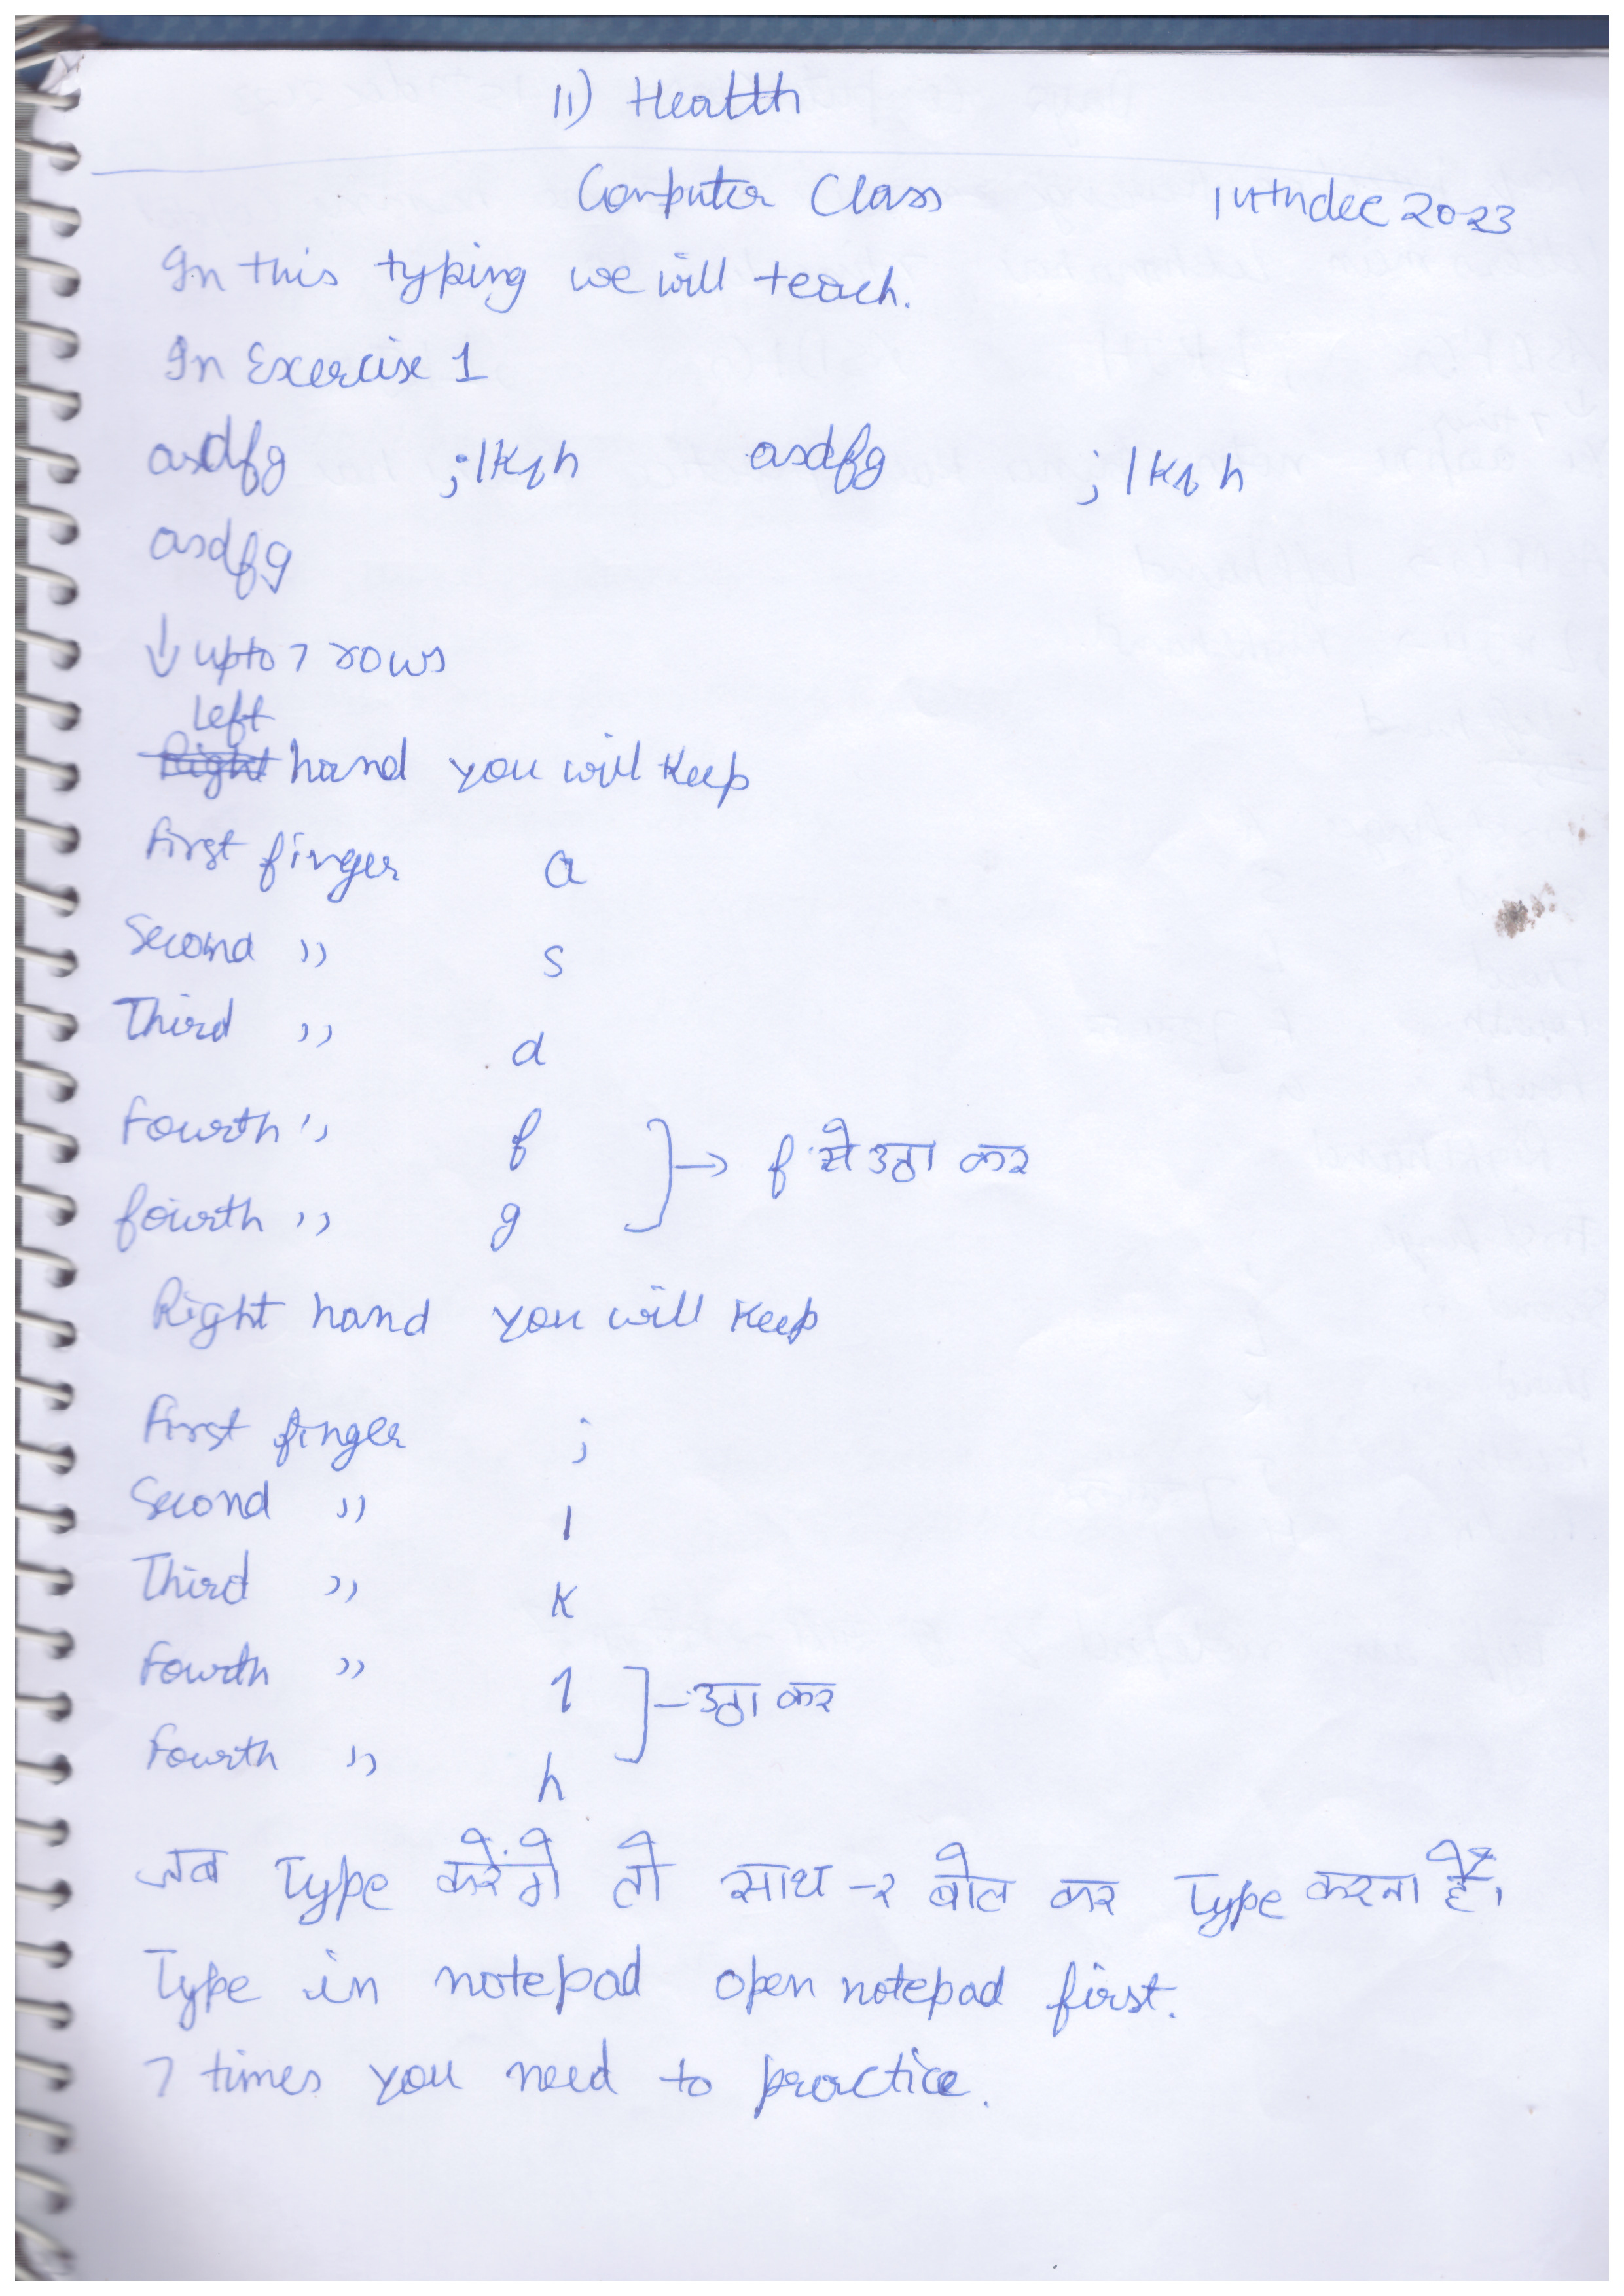 11) Health
Computer Class 14th dec 2023
In this typing we will teach.
In Exercise 1
asdfg ;lkjh asdfg ;lkjh
asdfg
↓ upto 7 rows
Left
Right hand you will keep
First finger a
Second ,, s
Third ,, d
Fourth ,, f
fourth ,, g ] → f से उठा कर
Right hand you will keep
First finger ;
Second ,, l
Third ,, k
Fourth ,, j
Fourth ,, h ] - उठा कर
जब Type करेंगे तो साथ -२ बोल कर Type करना है।
Type in notepad open notepad first.
7 times you need to practice.